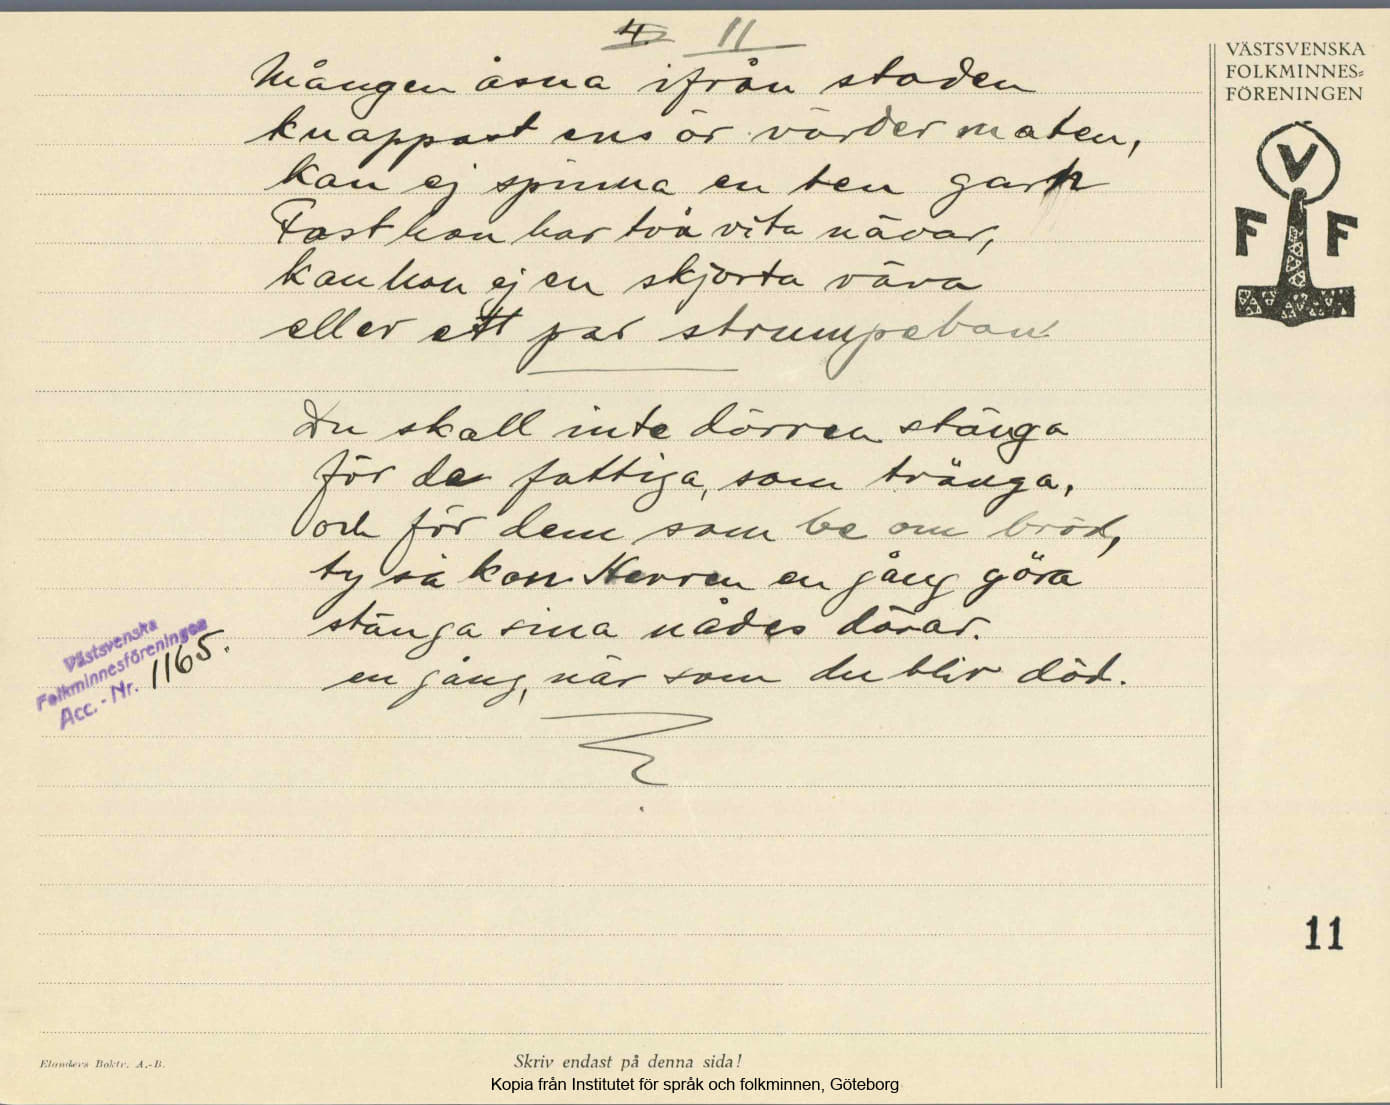 4. 11
VÄSTSVENSKA
FOLKMINNES=
FÖRENINGEN
V
F F
Mången åsna ifrån staden
knappast ens är värder maten,
kan ej spinna en ten garn
Fast hon har två vita nävar,
kan hon ej en skjorta väva
eller ett par strumpeban
Du skall inte dörren stänga
för de fattiga, som tränga,
och för dem som be om bröd,
ty så kan Herren en gång göra
stänga sina nådes dörar.
en gång, när som du blir död.
Västsvenska
Folkminnesföreningen
Acc. - Nr. 1165.
11
Elanders Boktr. A.-B.
Skriv endast på denna sida!
Kopia från Institutet för språk och folkminnen, Göteborg